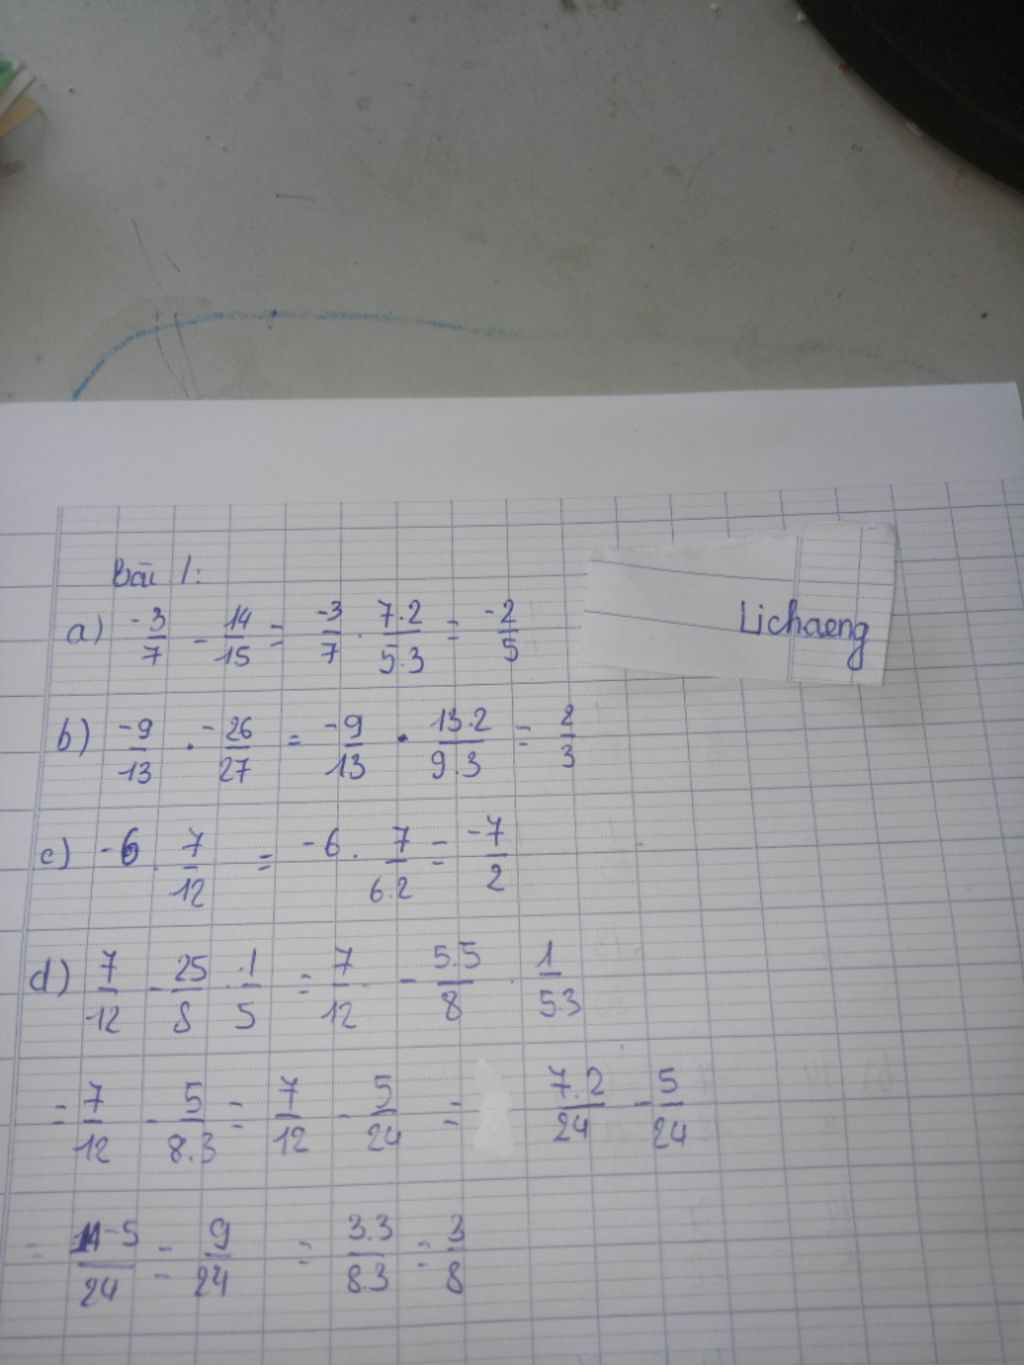 Bài 1:
a) -3/7 - 14/15 = -3/7 . 7.2/5.3 = -2/5
Lichaeng
b) -9/13 . -26/27 = -9/13 . 13.2/9.3 = 2/3
c) -6 . 7/12 = -6 . 7/6.2 = -7/2
d) 7/12 - 25/8 . 1/5 = 7/12 - 5.5/8 . 1/5.3
= 7/12 - 5/8.3 = 7/12 - 5/24 = 7.2/24 - 5/24
= 14-5/24 = 9/24 = 3.3/8.3 = 3/8